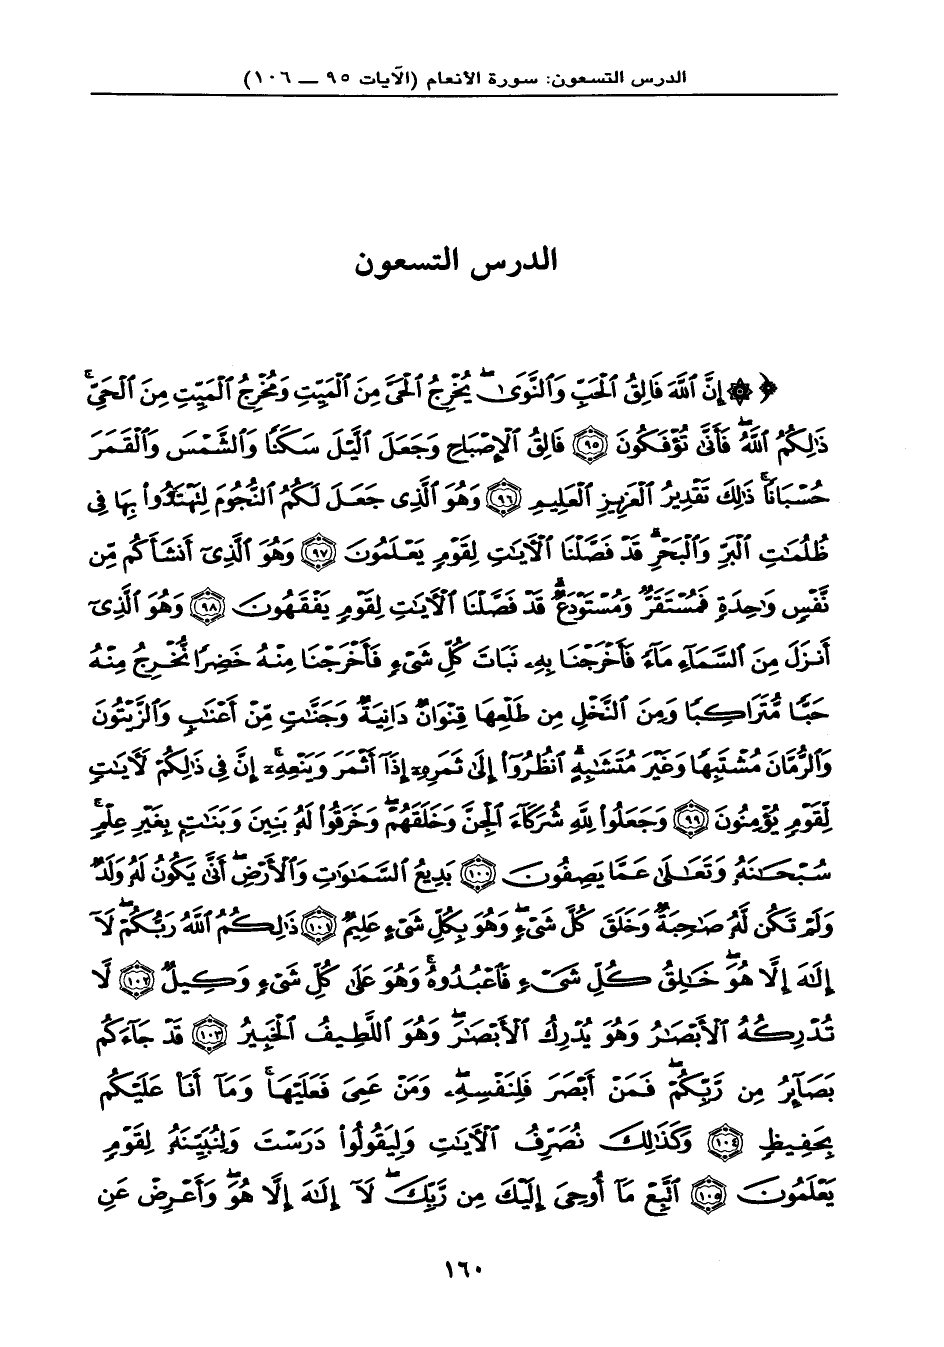 الدرس التسعون: سورة الأنعام (الآيات ٩٥ — ١٠٦)
الدرس التسعون
﴿ ۞ إِنَّ ٱللَّهَ فَالِقُ ٱلْحَبِّ وَٱلنَّوَىٰۖ يُخْرِجُ ٱلْحَىَّ مِنَ ٱلْمَيِّتِ وَمُخْرِجُ ٱلْمَيِّتِ مِنَ ٱلْحَىِّۚ
ذَٰلِكُمُ ٱللَّهُۖ فَأَنَّىٰ تُؤْفَكُونَ ﴿٩٥﴾ فَالِقُ ٱلْإِصْبَاحِ وَجَعَلَ ٱلَّيْلَ سَكَنًا وَٱلشَّمْسَ وَٱلْقَمَرَ
حُسْبَانًاۚ ذَٰلِكَ تَقْدِيرُ ٱلْعَزِيزِ ٱلْعَلِيمِ ﴿٩٦﴾ وَهُوَ ٱلَّذِى جَعَلَ لَكُمُ ٱلنُّجُومَ لِتَهْتَدُوا۟ بِهَا فِى
ظُلُمَٰتِ ٱلْبَرِّ وَٱلْبَحْرِۗ قَدْ فَصَّلْنَا ٱلْآيَٰتِ لِقَوْمٍ يَعْلَمُونَ ﴿٩٧﴾ وَهُوَ ٱلَّذِىٓ أَنشَأَكُم مِّن
نَّفْسٍ وَٰحِدَةٍ فَمُسْتَقَرٌّ وَمُسْتَوْدَعٌۗ قَدْ فَصَّلْنَا ٱلْآيَٰتِ لِقَوْمٍ يَفْقَهُونَ ﴿٩٨﴾ وَهُوَ ٱلَّذِىٓ
أَنزَلَ مِنَ ٱلسَّمَآءِ مَآءً فَأَخْرَجْنَا بِهِۦ نَبَاتَ كُلِّ شَىْءٍ فَأَخْرَجْنَا مِنْهُ خَضِرًا نُّخْرِجُ مِنْهُ
حَبًّا مُّتَرَاكِبًا وَمِنَ ٱلنَّخْلِ مِن طَلْعِهَا قِنْوَانٌ دَانِيَةٌ وَجَنَّٰتٍ مِّنْ أَعْنَابٍ وَٱلزَّيْتُونَ
وَٱلرُّمَّانَ مُشْتَبِهًا وَغَيْرَ مُتَشَٰبِهٍۗ ٱنظُرُوٓا۟ إِلَىٰ ثَمَرِهِۦٓ إِذَآ أَثْمَرَ وَيَنْعِهِۦٓۚ إِنَّ فِى ذَٰلِكُمْ لَآيَٰتٍ
لِّقَوْمٍ يُؤْمِنُونَ ﴿٩٩﴾ وَجَعَلُوا۟ لِلَّهِ شُرَكَآءَ ٱلْجِنَّ وَخَلَقَهُمْۖ وَخَرَقُوا۟ لَهُۥ بَنِينَ وَبَنَٰتٍۭ بِغَيْرِ عِلْمٍۚ
سُبْحَٰنَهُۥ وَتَعَٰلَىٰ عَمَّا يَصِفُونَ ﴿١٠٠﴾ بَدِيعُ ٱلسَّمَٰوَٰتِ وَٱلْأَرْضِۖ أَنَّىٰ يَكُونُ لَهُۥ وَلَدٌ
وَلَمْ تَكُن لَّهُۥ صَٰحِبَةٌۖ وَخَلَقَ كُلَّ شَىْءٍۖ وَهُوَ بِكُلِّ شَىْءٍ عَلِيمٌ ﴿١٠١﴾ ذَٰلِكُمُ ٱللَّهُ رَبُّكُمْۖ لَآ
إِلَٰهَ إِلَّا هُوَۖ خَٰلِقُ كُلِّ شَىْءٍ فَٱعْبُدُوهُۚ وَهُوَ عَلَىٰ كُلِّ شَىْءٍ وَكِيلٌ ﴿١٠٢﴾ لَّا
تُدْرِكُهُ ٱلْأَبْصَٰرُ وَهُوَ يُدْرِكُ ٱلْأَبْصَٰرَۖ وَهُوَ ٱللَّطِيفُ ٱلْخَبِيرُ ﴿١٠٣﴾ قَدْ جَآءَكُم
بَصَآئِرُ مِن رَّبِّكُمْۖ فَمَنْ أَبْصَرَ فَلِنَفْسِهِۦۖ وَمَنْ عَمِىَ فَعَلَيْهَاۚ وَمَآ أَنَا۠ عَلَيْكُم
بِحَفِيظٍ ﴿١٠٤﴾ وَكَذَٰلِكَ نُصَرِّفُ ٱلْآيَٰتِ وَلِيَقُولُوا۟ دَرَسْتَ وَلِنُبَيِّنَهُۥ لِقَوْمٍ
يَعْلَمُونَ ﴿١٠٥﴾ ٱتَّبِعْ مَآ أُوحِىَ إِلَيْكَ مِن رَّبِّكَۖ لَآ إِلَٰهَ إِلَّا هُوَۖ وَأَعْرِضْ عَنِ
١٦٠